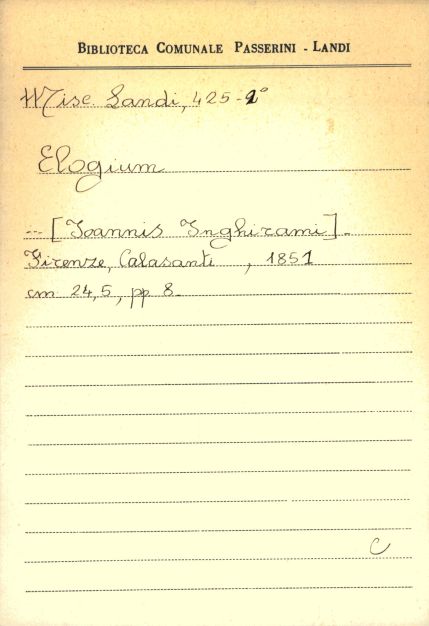 BIBLIOTECA COMUNALE PASSERINI - LANDI
Misc. Landi, 425-2°
Elogium
-- [Ioannis Inghirami].
Firenze, Calasanti , 1851
cm 24,5, pp 8.
C